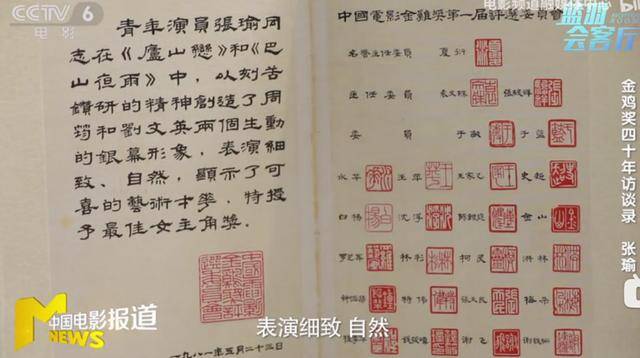 CCTV 6
电影
青年演員張瑜同
志在《廬山戀》和《巴
山夜雨》中,以刻苦
鑽研的精神創造了周
筠和劉文英兩個生動
的銀幕形象,表演細
致、自然,顯示了可
喜的藝術才華,特授
予最佳女主角獎。
一九八一年五月二十三日
中國電影金雞獎第一届評選委員會
名誉主任委員 夏衍
主任委員 袁文殊 張駿祥
委員 于敏 于藍
水華 王苹 王家乙 史超
白楊 沈浮 金山
羅藝軍 林杉 柯靈 洪林
鍾惦棐 特偉 張天民 梅朵
謝飞
蓝羽
会客厅
金鸡奖四十年访谈录 张瑜
M
中国电影报道
NEWS
表演细致 自然